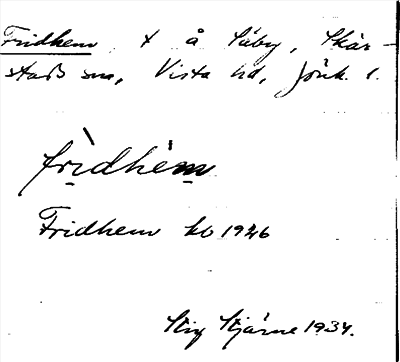 Fridhem t å Säby, Skär-
stads sn, Vista hd, Jönk. l.
frìdhém
Fridhem kb 1926
Stig Stjärne 1934.